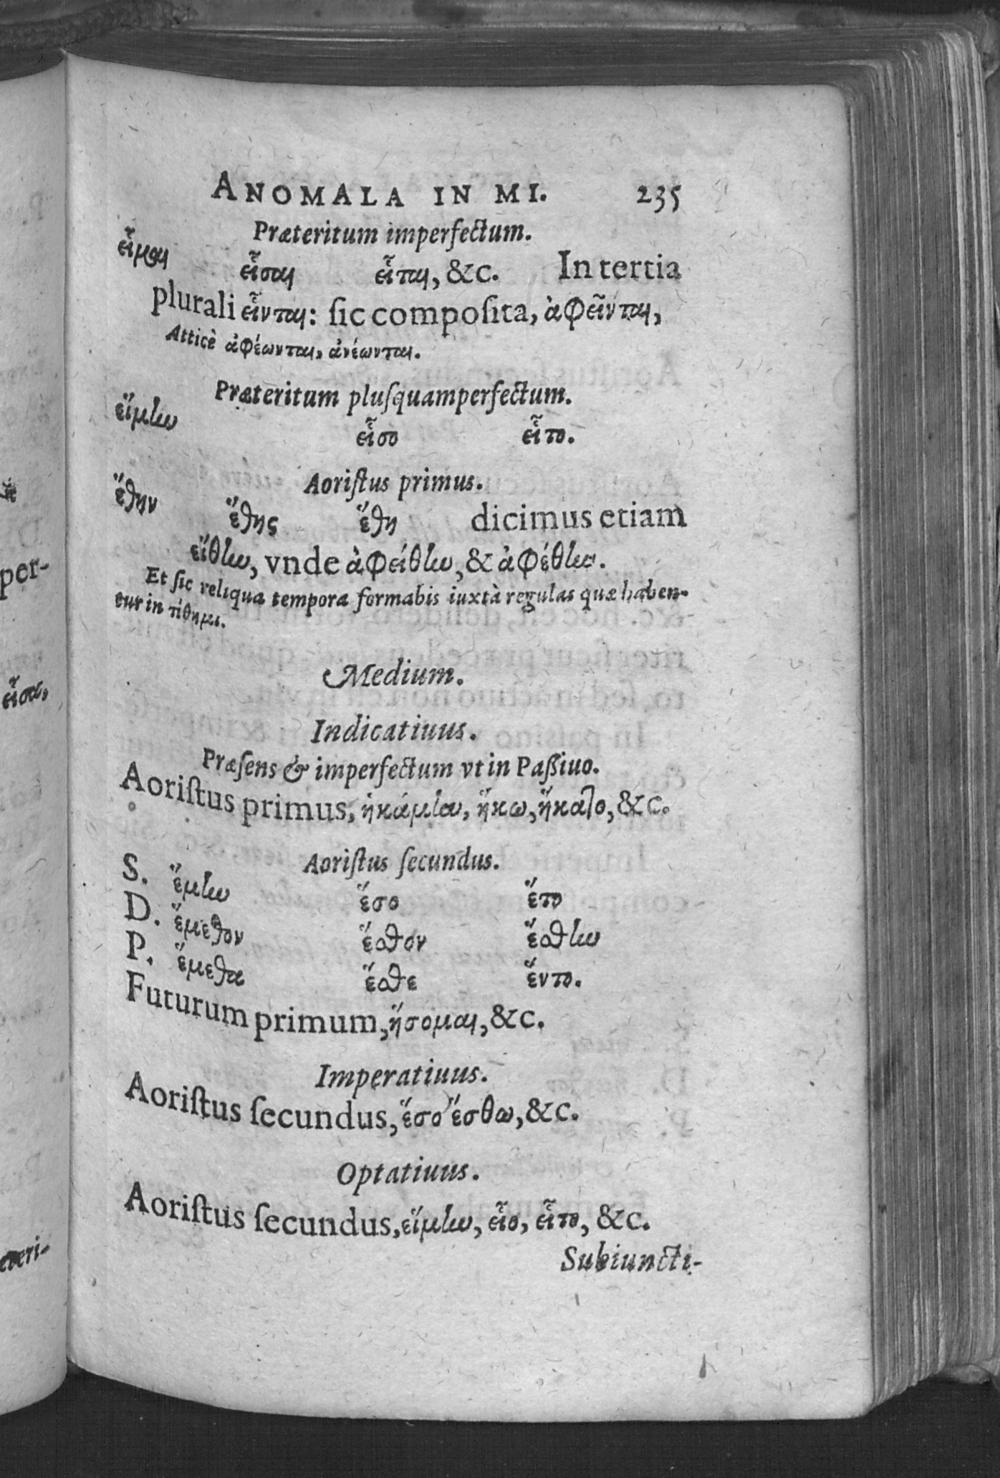 ANOMALA IN MI. 235
Præteritum imperfectum.
εἷμαι εἷσαι εἷται, &c. In tertia
plurali εἷνται: ſic compoſita, ἀφεῖνται,
Atticè ἀφέωνται, ἀνέωνται.
Præteritum pluſquamperfectum.
εἵμην εἷσο εἷτο.
Aoriſtus primus.
ἕθην ἕθης ἕθη dicimus etiam
εἵθην, vnde ἀφείθην, & ἀφέθην.
Et ſic reliqua tempora formabis iuxtà regulas quæ haben-
tur in τίθημι.
Medium.
Indicatiuus.
Præſens & imperfectum vt in Paſſiuo.
Aoriſtus primus, ἡκάμην, ἥκω, ἥκατο, &c.
Aoriſtus ſecundus.
S. ἕμην ἕσο ἕτο
D. ἕμεθον ἕσθον ἕσθην
P. ἕμεθα ἕσθε ἕντο.
Futurum primum, ἥσομαι, &c.
Imperatiuus.
Aoriſtus ſecundus, ἕσο ἕσθω, &c.
Optatiuus.
Aoriſtus ſecundus, εἵμην, εἷο, εἷτο, &c.
Subiuncti-
per-